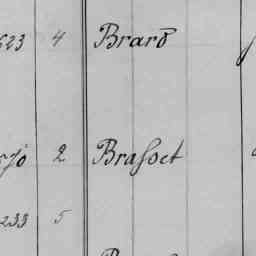 623 4 Brard
570 2 Brassoet
233 5